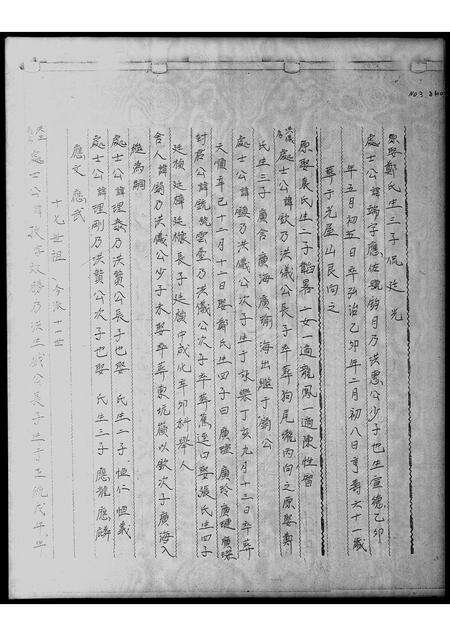 NO 3
原娶鄭氏生三子 侃 廷 光
處士公諱端字應佐號鈞月乃洪惠公少子也生宣德乙卯
年五月初五日卒弘治乙卯年二月初八日享壽六十一歲
葬于光屋山艮向之
原娶袁氏生二子 二女一適龍鳳一適陳性學
處士公諱欽乃洪儀公長子卒葬狗尾巃丙向之原娶鄭
氏生三子 廣含 廣海 廣瀚 海出繼于鈞公
處士公諱鎰乃洪儀公次子生于永樂丁亥九月十三日卒葬
天順辛巳十二月十二日娶鄭氏生四子曰 廣 廣玲 廣璉 廣
封君公諱銃號雲臺乃洪儀公次子卒葬蕉逕口娶張氏生四子
廷楨 廷 廷 長子廷楨中成化辛卯科舉人
舍人諱鈞乃洪儀公少子未娶卒葬東坑嶺以欽次子廣海入
繼為嗣
處士公諱理泰乃洪贊公長子也娶 氏生二子 恒仁 恒義
處士公諱理剛乃洪贊公次子也娶 氏生三子 應龍 應麟
應文 應武
十九世祖 今派十一世
處士公諱 字 乃洪生 公長子生于正統戊午年